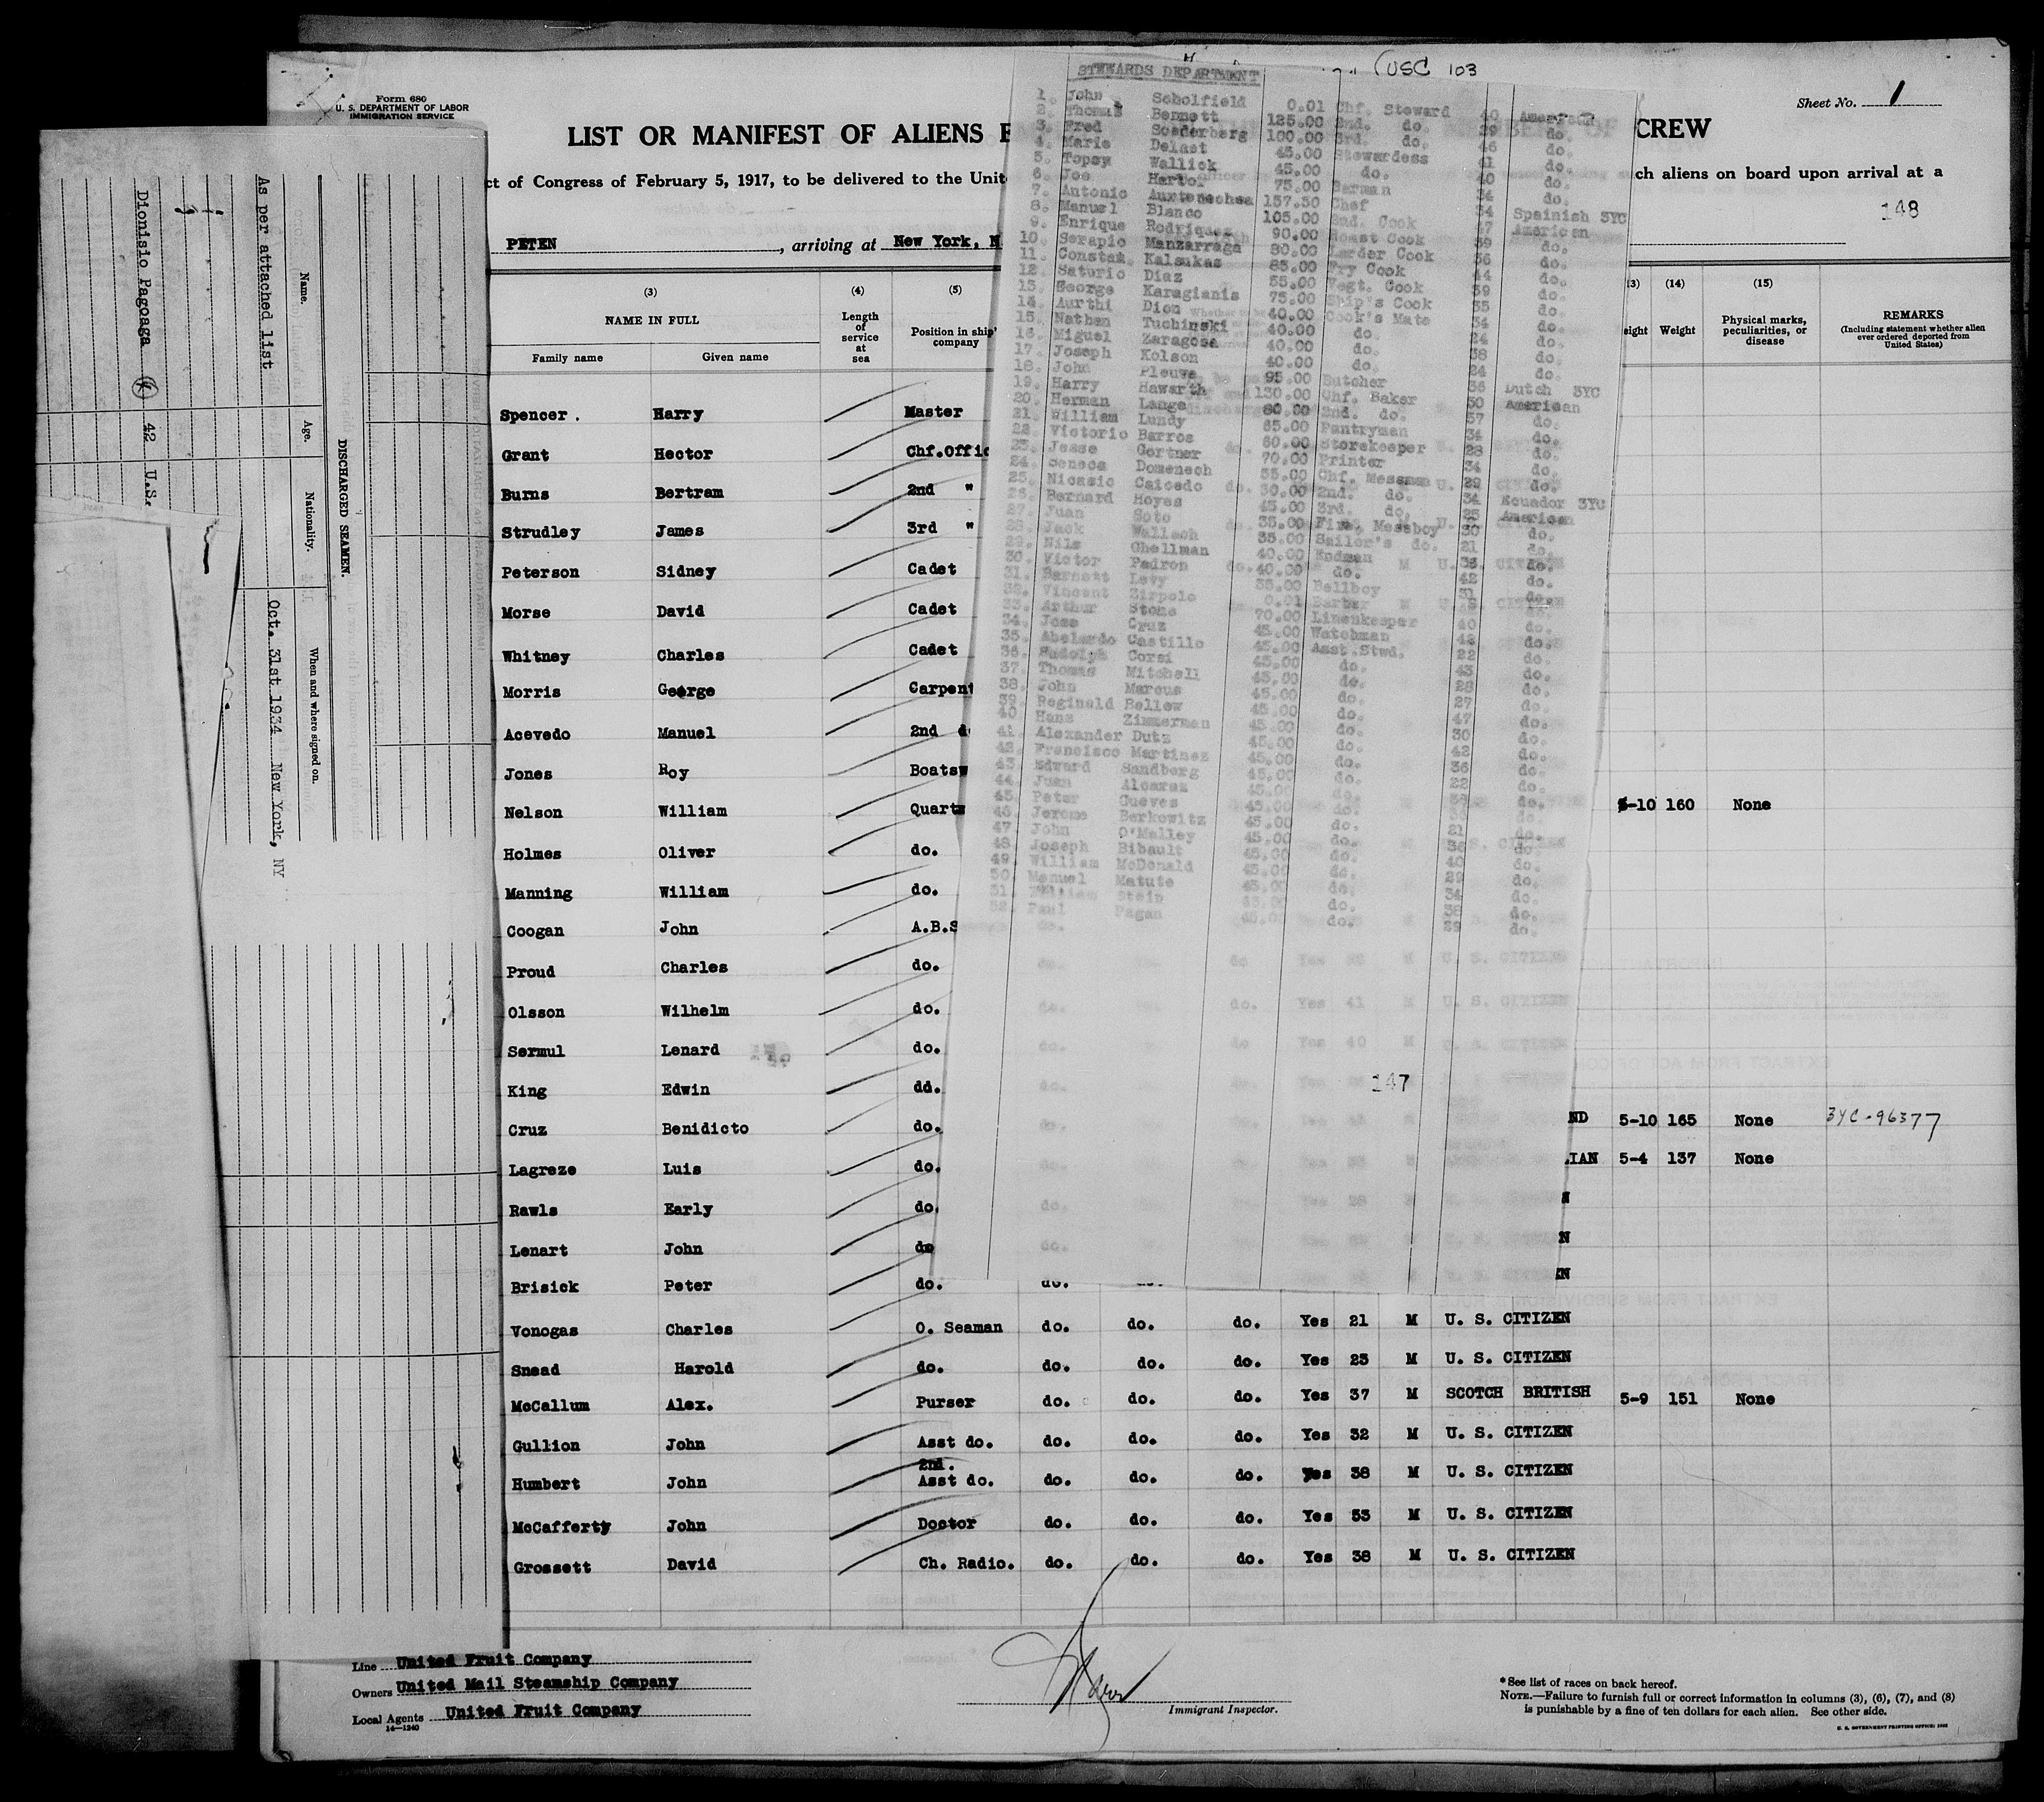 Form 680
U. S. DEPARTMENT OF LABOR
IMMIGRATION SERVICE
Sheet No. 1
LIST OR MANIFEST OF ALIENS E
CREW
ct of Congress of February 5, 1917, to be delivered to the Unit
ch aliens on board upon arrival at a
148
PETEN , arriving at New York, N
(3) (4) (5) 13) (14) (15)
NAME IN FULL
Family name Given name
Length of service at sea
Position in ship's company
eight Weight
Physical marks, peculiarities, or disease
REMARKS
(Including statement whether alien ever ordered deported from United States)
Spencer . Harry Master
Grant Hector Chf.Offic
Burns Bertram 2nd "
Strudley James 3rd "
Peterson Sidney Cadet
Morse David Cadet
Whitney Charles Cadet
Morris George Carpent
Acevedo Manuel 2nd d
Jones Roy Boatsw
Nelson William Quart 5-10 160 None
Holmes Oliver do.
Manning William do.
Coogan John A.B.S
Proud Charles do.
Olsson Wilhelm do.
Sermul Lenard do.
King Edwin do.
Cruz Benidicto do. ND 5-10 165 None 3YC-96377
Lagreze Luis do. IAN 5-4 137 None
Rawls Early do. N
Lenart John do N
Brisick Peter do. do. EN
Vonogas Charles O. Seaman do. do. do. Yes 21 M U. S. CITIZEN
Snead Harold do. do. do. do. Yes 23 M U. S. CITIZEN
McCallum Alex. Purser do. do. do. Yes 37 M SCOTCH BRITISH 5-9 151 None
Gullion John Asst do. do. do. do. Yes 32 M U. S. CITIZEN
Humbert John 2nd. Asst do. do. do. do. Yes 38 M U. S. CITIZEN
McCafferty John Doctor do. do. do. Yes 53 M U. S. CITIZEN
Grossett David Ch. Radio. do. do. do. Yes 38 M U. S. CITIZEN
Line United Fruit Company
Owners United Mail Steamship Company
Local Agents United Fruit Company
14—1240
Immigrant Inspector.
*See list of races on back hereof.
NOTE.—Failure to furnish full or correct information in columns (3), (6), (7), and (8)
is punishable by a fine of ten dollars for each alien. See other side.
U. S. GOVERNMENT PRINTING OFFICE:
USC 103
STEWARDS DEPARTMENT
1. John Scholfield 0.01 Chf. Steward 40 American
2. Thomas Bennett 125.00 2nd. do. 29 do.
3. Fred Soederberg 100.00 3rd. do. 46 do.
4. Marie Delast 45.00 Stewardess 41 do.
5. Topsy Wallick 45.00 do. 40 do.
6. Joe Harbor 75.00 Barman 34 do.
7. Antonio 157.50 Chef 34 Spainish 3YC
8. Manuel Blanco 105.00 2nd. Cook 47 American
9. Enrique Rodriquez 90.00 Roast Cook 39 do.
10. Serapio Manzarraga 80.00 Larder Cook 36 do.
11. Constan. Kalsukas 85.00 Fry Cook 44 do.
12. Saturio Diaz 55.00 Vegt. Cook 39 do.
13. George Karagianis 75.00 Ship's Cook 35 do.
14. Aurthi Dion 40.00 Cook's Mate 34 do.
15. Nathan Tuchinski 40.00 do. 24 do.
16. Miguel Zaragosa 40.00 do. 38 do.
17. Joseph Kolson 40.00 do. 24 do.
18. John Pleuve 95.00 Butcher 36 Dutch 3YC
19. Harry Hawarth 130.00 Chf. Baker 50 American
20. Herman Lange 80.00 2nd. do. 37 do.
21. William Lundy 65.00 Pantryman 34 do.
22. Victorio Barros 60.00 Storekeeper 28 do.
23. Jesse Gortner 70.00 Printer 34 do.
24. Seneca Domenech 55.00 Chf. Messman 29 do.
25. Nicasio Caicedo 30.00 2nd. do. 34 Ecuador 3YC
26. Bernard Hoyes 45.00 3rd. do. 25 American
27. Juan Soto 35.00 Fire. Messboy 30 do.
28. Jack Wallach 35.00 Sailor's do. 21 do.
29. Nils Ghellman 40.00 do.
30. Victor Padron 40.00 do. 42 do.
31. Barnett Levy 35.00 Bellboy 31 do.
32. Vincent Zirpolo 0.01 Barber do.
33. Arthur Stone 70.00 Linenkeeper 40 do.
34. Jose Cruz 45.00 Watchman 42 do.
35. Abelardo Castillo 45.00 Asst.Stwd. 22 do.
36. Rudolph Corsi 45.00 do. 43 do.
37. Thomas Mitchell 45.00 do. 28 do.
38. John Marcus 45.00 do. 27 do.
39. Reginald Bellew 45.00 do. 47 do.
40. Hans Zimmerman 45.00 do. 30 do.
41. Alexander Dutz 45.00 do. 42 do.
42. Francisco Martinez 45.00 do. 36 do.
43. Edward Sandberg 45.00 do. 22 do.
44. Juan Alcaraz 45.00 do. do.
45. Peter Cueves 45.00 do. do.
46. Jerome Berkowitz 45.00 do. 21 do.
47. John O'Malley 45.00 do. 36 do.
48. Joseph Bibault 45.00 do. 40 do.
49. William McDonald 45.00 do. 29 do.
50. Manuel Matute 45.00 do. 34 do.
51. William Stein 45.00 do. 38 do.
52. Paul Pagan 45.00 do. 29 do.
147
DISCHARGED SEAMEN.
Name. Age. Nationality. When and where signed on.
As per attached list Oct. 31st 1934 New York, NY
Dionisio Pagoaga 42 U.S.